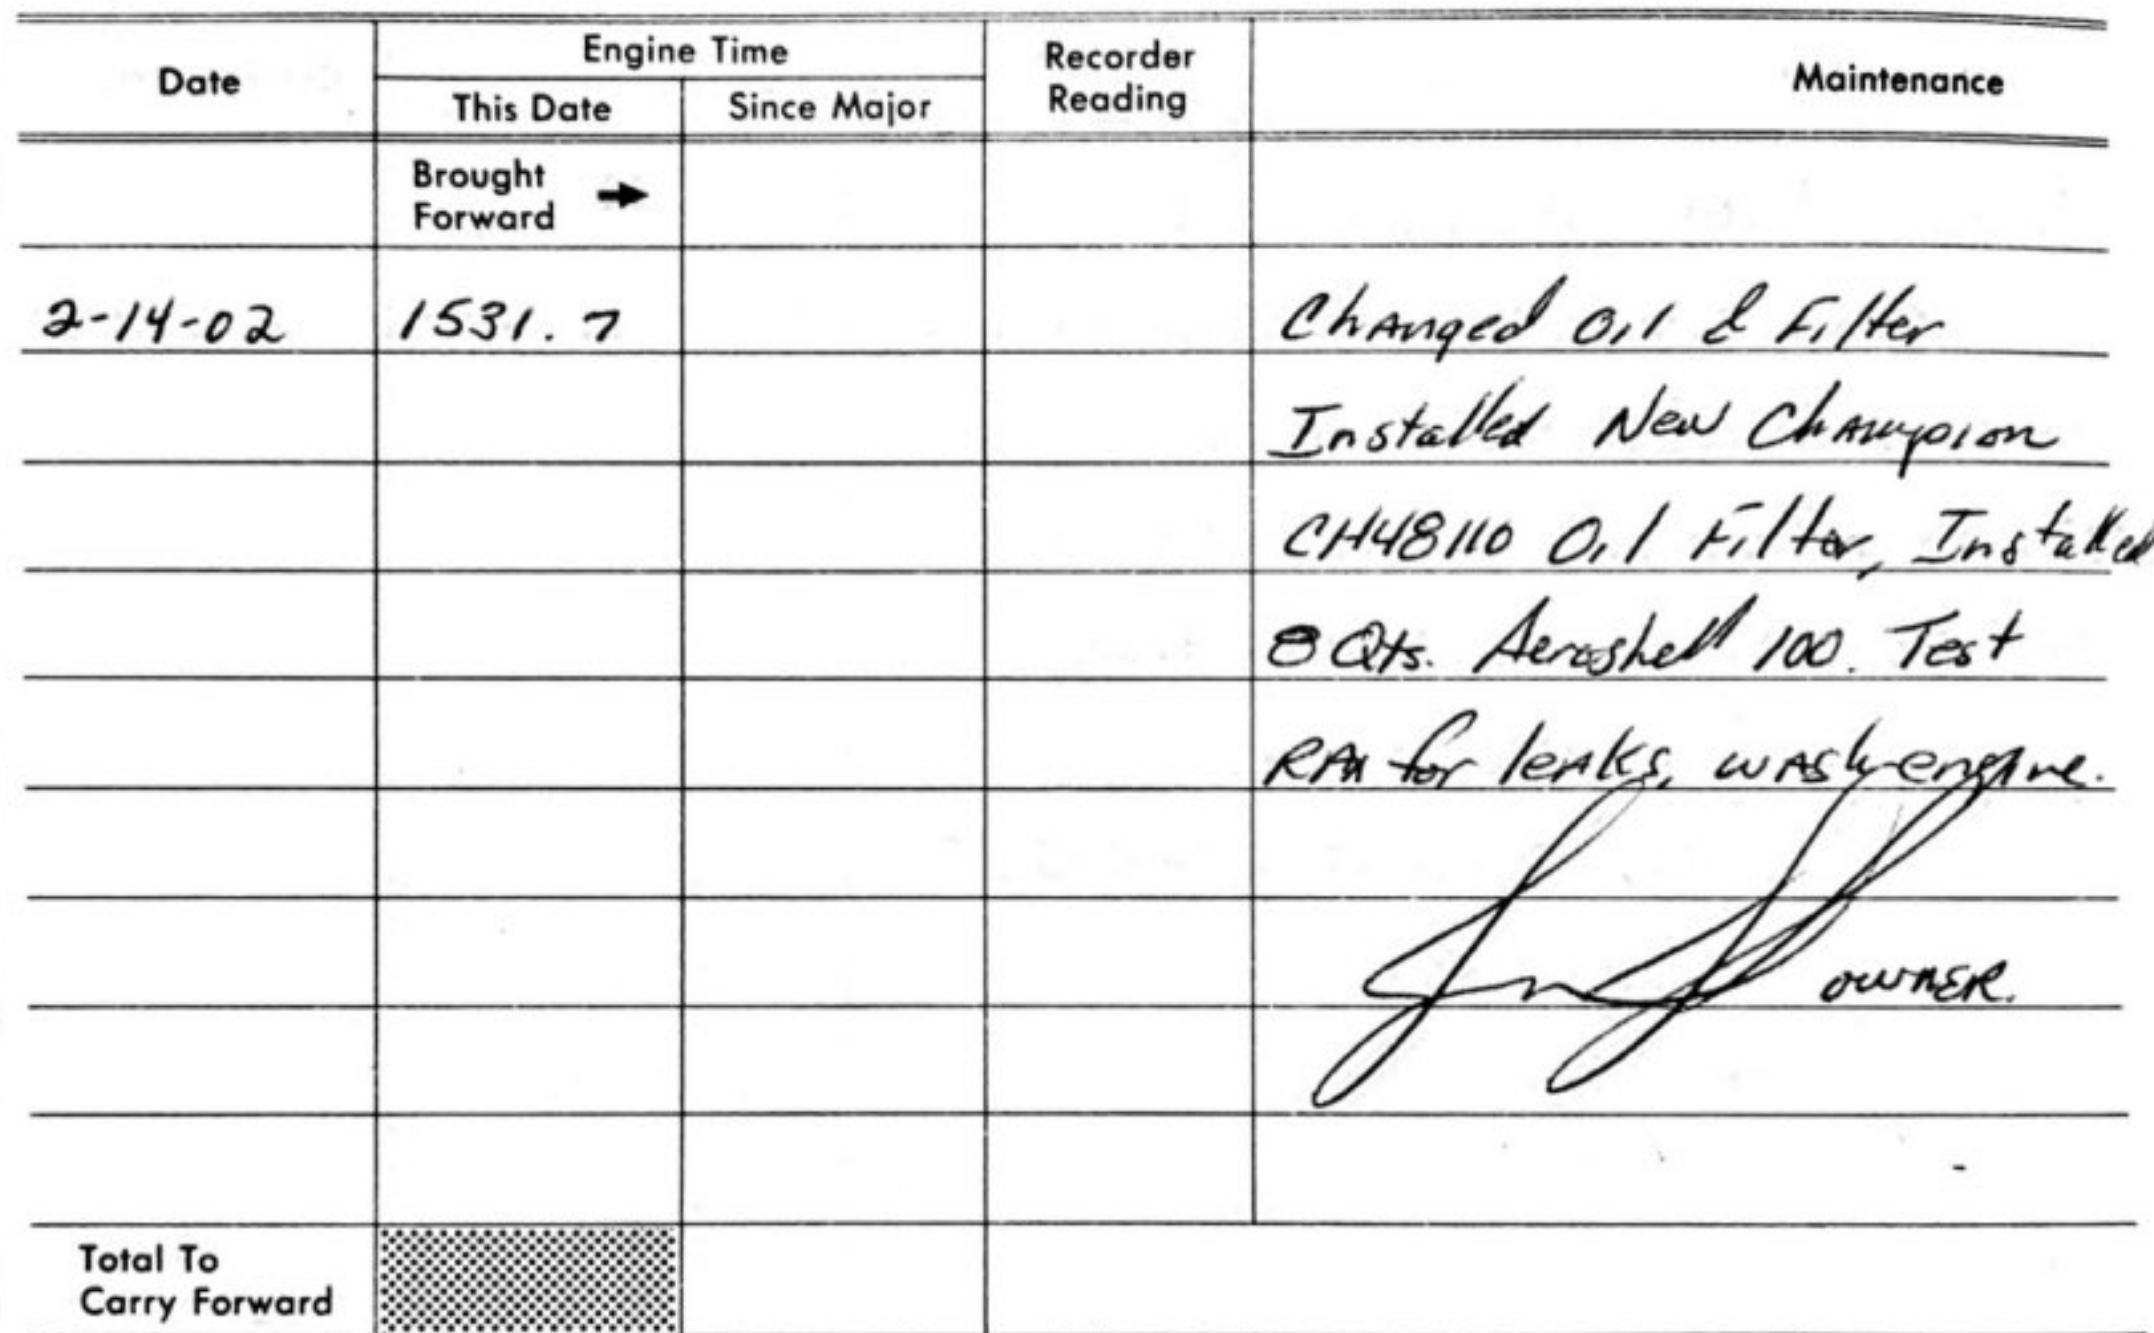 Date
Engine Time
This Date
Since Major
Recorder
Reading
Maintenance
Brought
Forward
2-14-02 1531.7 Changed Oil & Filter
Installed New Champion
CH48110 Oil Filter, Installed
8 Qts. Aeroshell 100. Test
RAN for leaks, wash engine.
OWNER.
Total To
Carry Forward